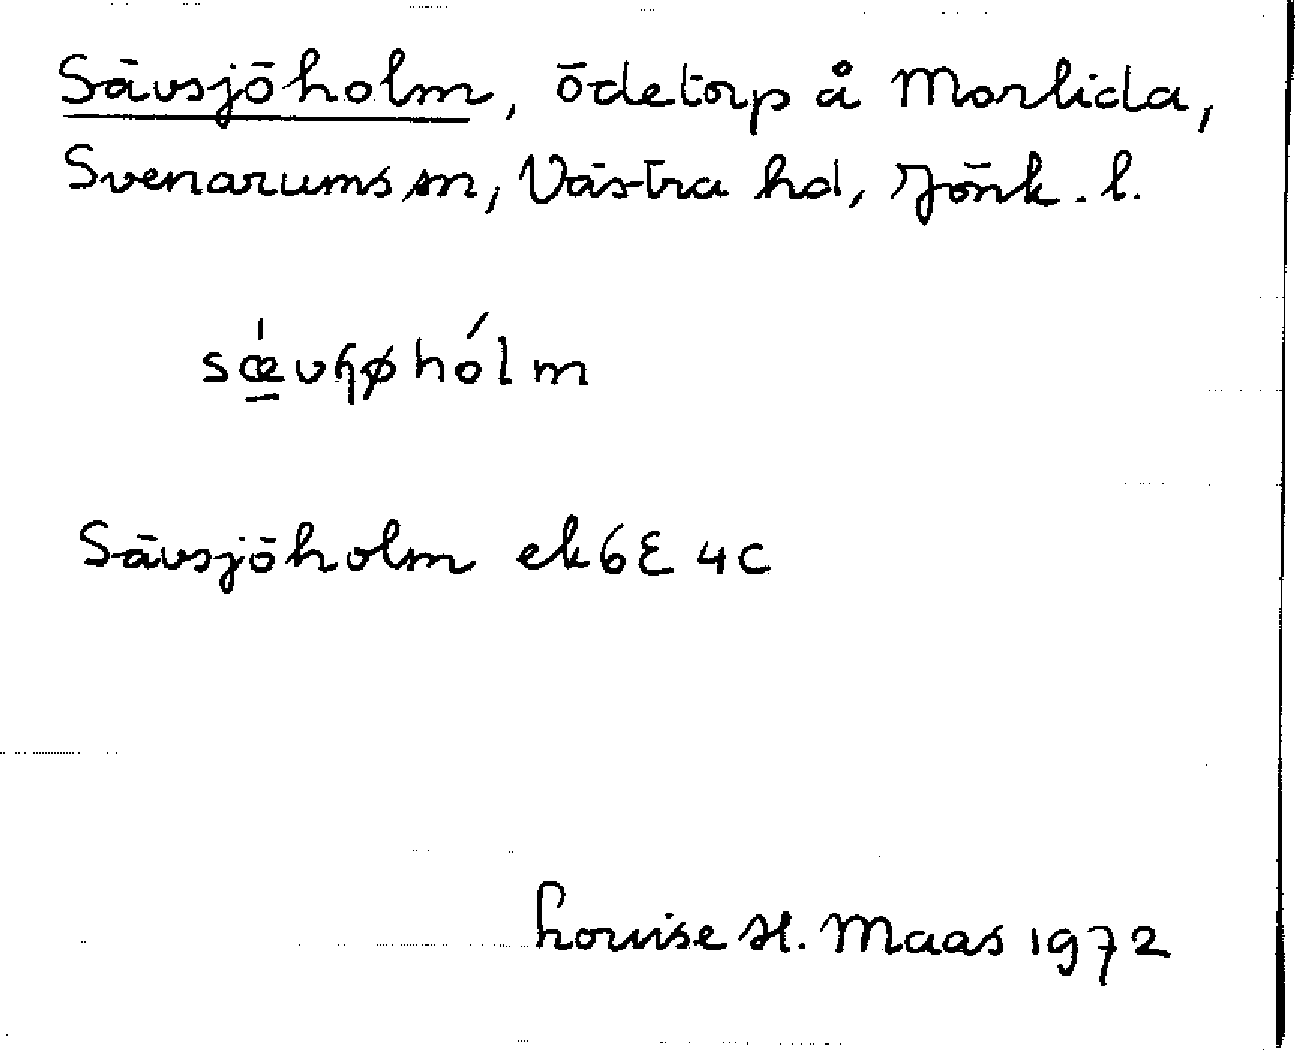 Sävsjöholm, ödetorp å Morlida,
Svenarums sn, Västra hd, Jönk. l.
sǽ̲vɧøhólm
Sävsjöholm ek 6E 4C
Louise H. Maas 1972